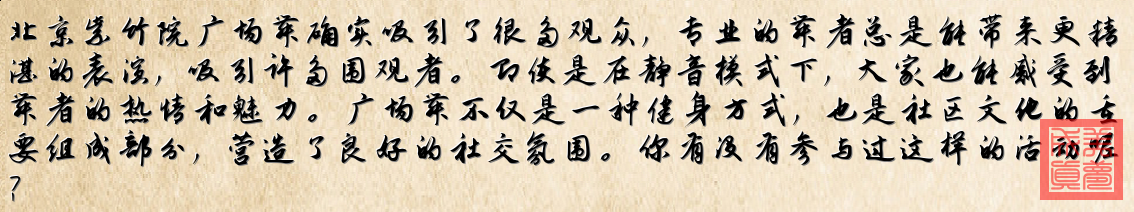 北京紫竹院广场舞确实吸引了很多观众，专业的舞者总是能带来更精
湛的表演，吸引许多围观者。即使是在静音模式下，大家也能感受到
舞者的热情和魅力。广场舞不仅是一种健身方式，也是社区文化的重
要组成部分，营造了良好的社交氛围。你有没有参与过这样的活动呢
？